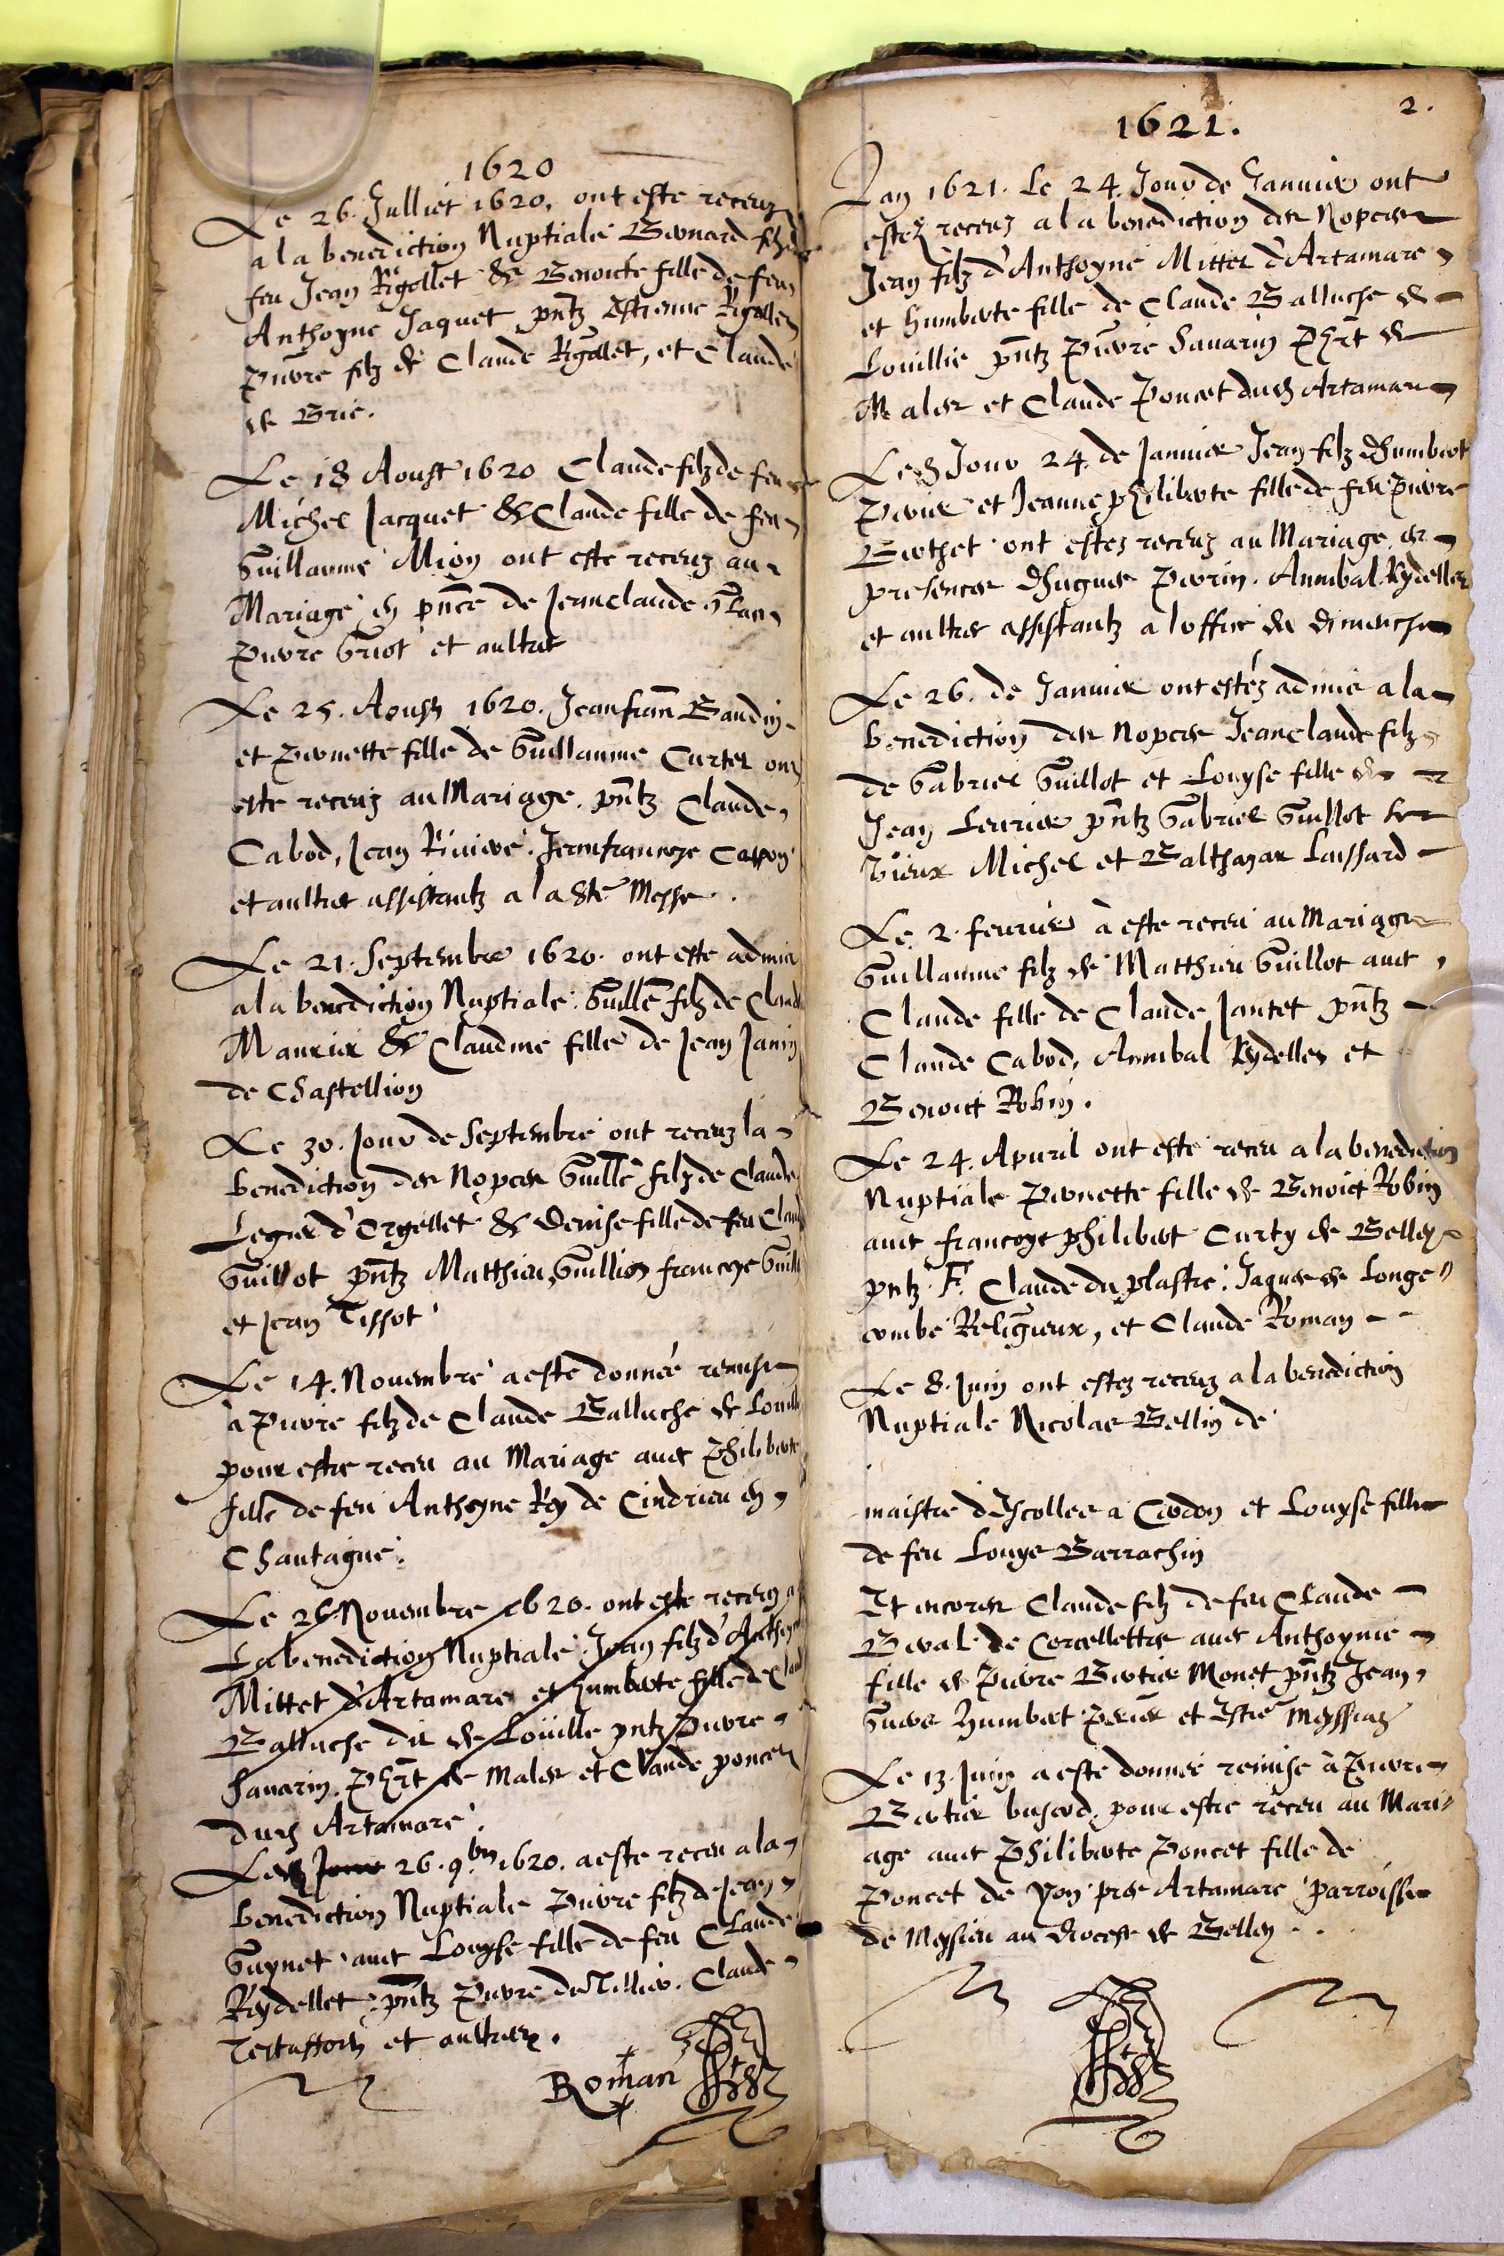 1620
Le 26. Julliet 1620. ont este receuz
a la benediction Nuptiale Bernard filz de
feu Jean Rigollet & Benoicte fille de feu
Anthoyne Jaquet pntz Estienne Rigollet
Pierre filz de Claude Rigollet, et Claude
de Brie.
Le 18 Aoust 1620 Claude filz de feu
Michel Jacquet & Claude fille de feu
Guillaume Mion ont este receuz au
Mariage en pnce de Jeanclaude
Pierre Griot et aultres
Le 25. Aoust 1620. Jeanfran Baudin
et Pernette fille de Guillaume Curtet ont
este receuz au Mariage. pntz Claude
Cabod, Jean Riviere. Jeanfrancoys
et aultres assistantz a la Ste Messe.
Le 21. Septembre 1620. ont este admis
a la benediction Nuptiale. Guille filz de Claude
Maurier & Claudine fille de Jean Janin
de Chastellion
Le 30. Jour de Septembre ont receuz la
benediction des Nopces Guille filz de Claude
Leger d'Orgellet & Denise fille de feu Claude
Guillot pntz Matthieu, Guillion francoys Guillot
et Jean Tissot
Le 14. Novembre a este donné remise
à Pierre filz de Claude Balluche de Louille
pour estre receu au Mariage avec Philiberte
fille de feu Anthoyne Rey de Cindrieu en
Chautagne.
Le 25 Novembre 1620. ont este receuz a
La benediction Nuptiale Jean filz d'Anthoyne
Mittet d'Artamare et humberte fille de Claude
Balluche dit de Louille pntz Pierre
Savarin. Phrt de Males et Claude poncet
dud Artamare.
Led Jour 26. 9.bre 1620. a este receu a la
benediction Nuptiale Pierre filz de Jean
Guynet avec Loyse fille de feu Claude
Rydellet. pntz Pierre du Tillier. Claude
et aultres.
Roman
2.
1621.
Lan 1621. Le 24. Jour de Janvier ont
estez receuz a la benediction des Nopces
Jean filz d'Anthoyne Mittet d'Artamare
et humberte fille de Claude Balluche de
Louillie pntz Pierre Savarin Phrt de
Males et Claude Poncet dud Artamare
Led Jour 24. de Janvier Jean filz d'humbert
Perrier et Jeanne philiberte fille de feu Pierre
Berthet ont estez receuz au Mariage es
presences d'hugues Perrin. Annibal Rydellet
et aultres assistantz a loffice du dimenche
Le 26. de Janvier ont estéz admis a la
benediction des Nopces Jeanclaude filz
de Gabriel Guillot et Louyse fille de
Jean Levrier pntz Gabriel Guillot le
vieux Michel et Balthazar Laissard
Le 2. fevrier à este receu au Mariage
Guillaume filz de Matthieu Guillot avec
Claude fille de Claude Jantet pntz
Claude Cabod, Annibal Rydellet et
Benoict Robin.
Le 24. Apuril ont este receu a la benediction
Nuptiale Pernette fille de Benoict Robin
avec francoys philibert Curty de Belley
pntz F. Claude du plastre. Jaques de Longe
combe Religieux, et Claude Roman
Le 8. Juin ont estez receuz a la benediction
Nuptiale Nicolas Bellin de
maistre d'escolles a Cerdon et Louyse fille
de feu Louys Barrachin
Et encores Claude filz de feu Claude
Beval de Corcellettes avec Anthoynie
fille de Pierre Bertier Monet pntz Jean
humbert Perrier et Messieu
Le 13. Juin a este donnée remise à Pierre
Bertier buserd. pour estre receu au Mari
age avec Philiberte Poncet fille de
Poncet de Yon pres Artamare parroisse
de Meyrieu au diocese de Belley